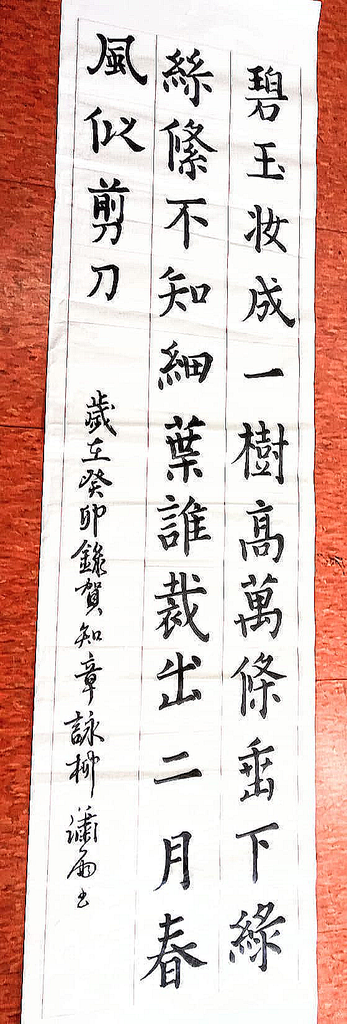 碧玉妆成一樹高萬條垂下綠
絲絛不知細葉誰裁出二月春
風似剪刀
歲在癸卯錄賀知章詠柳瀟雨書